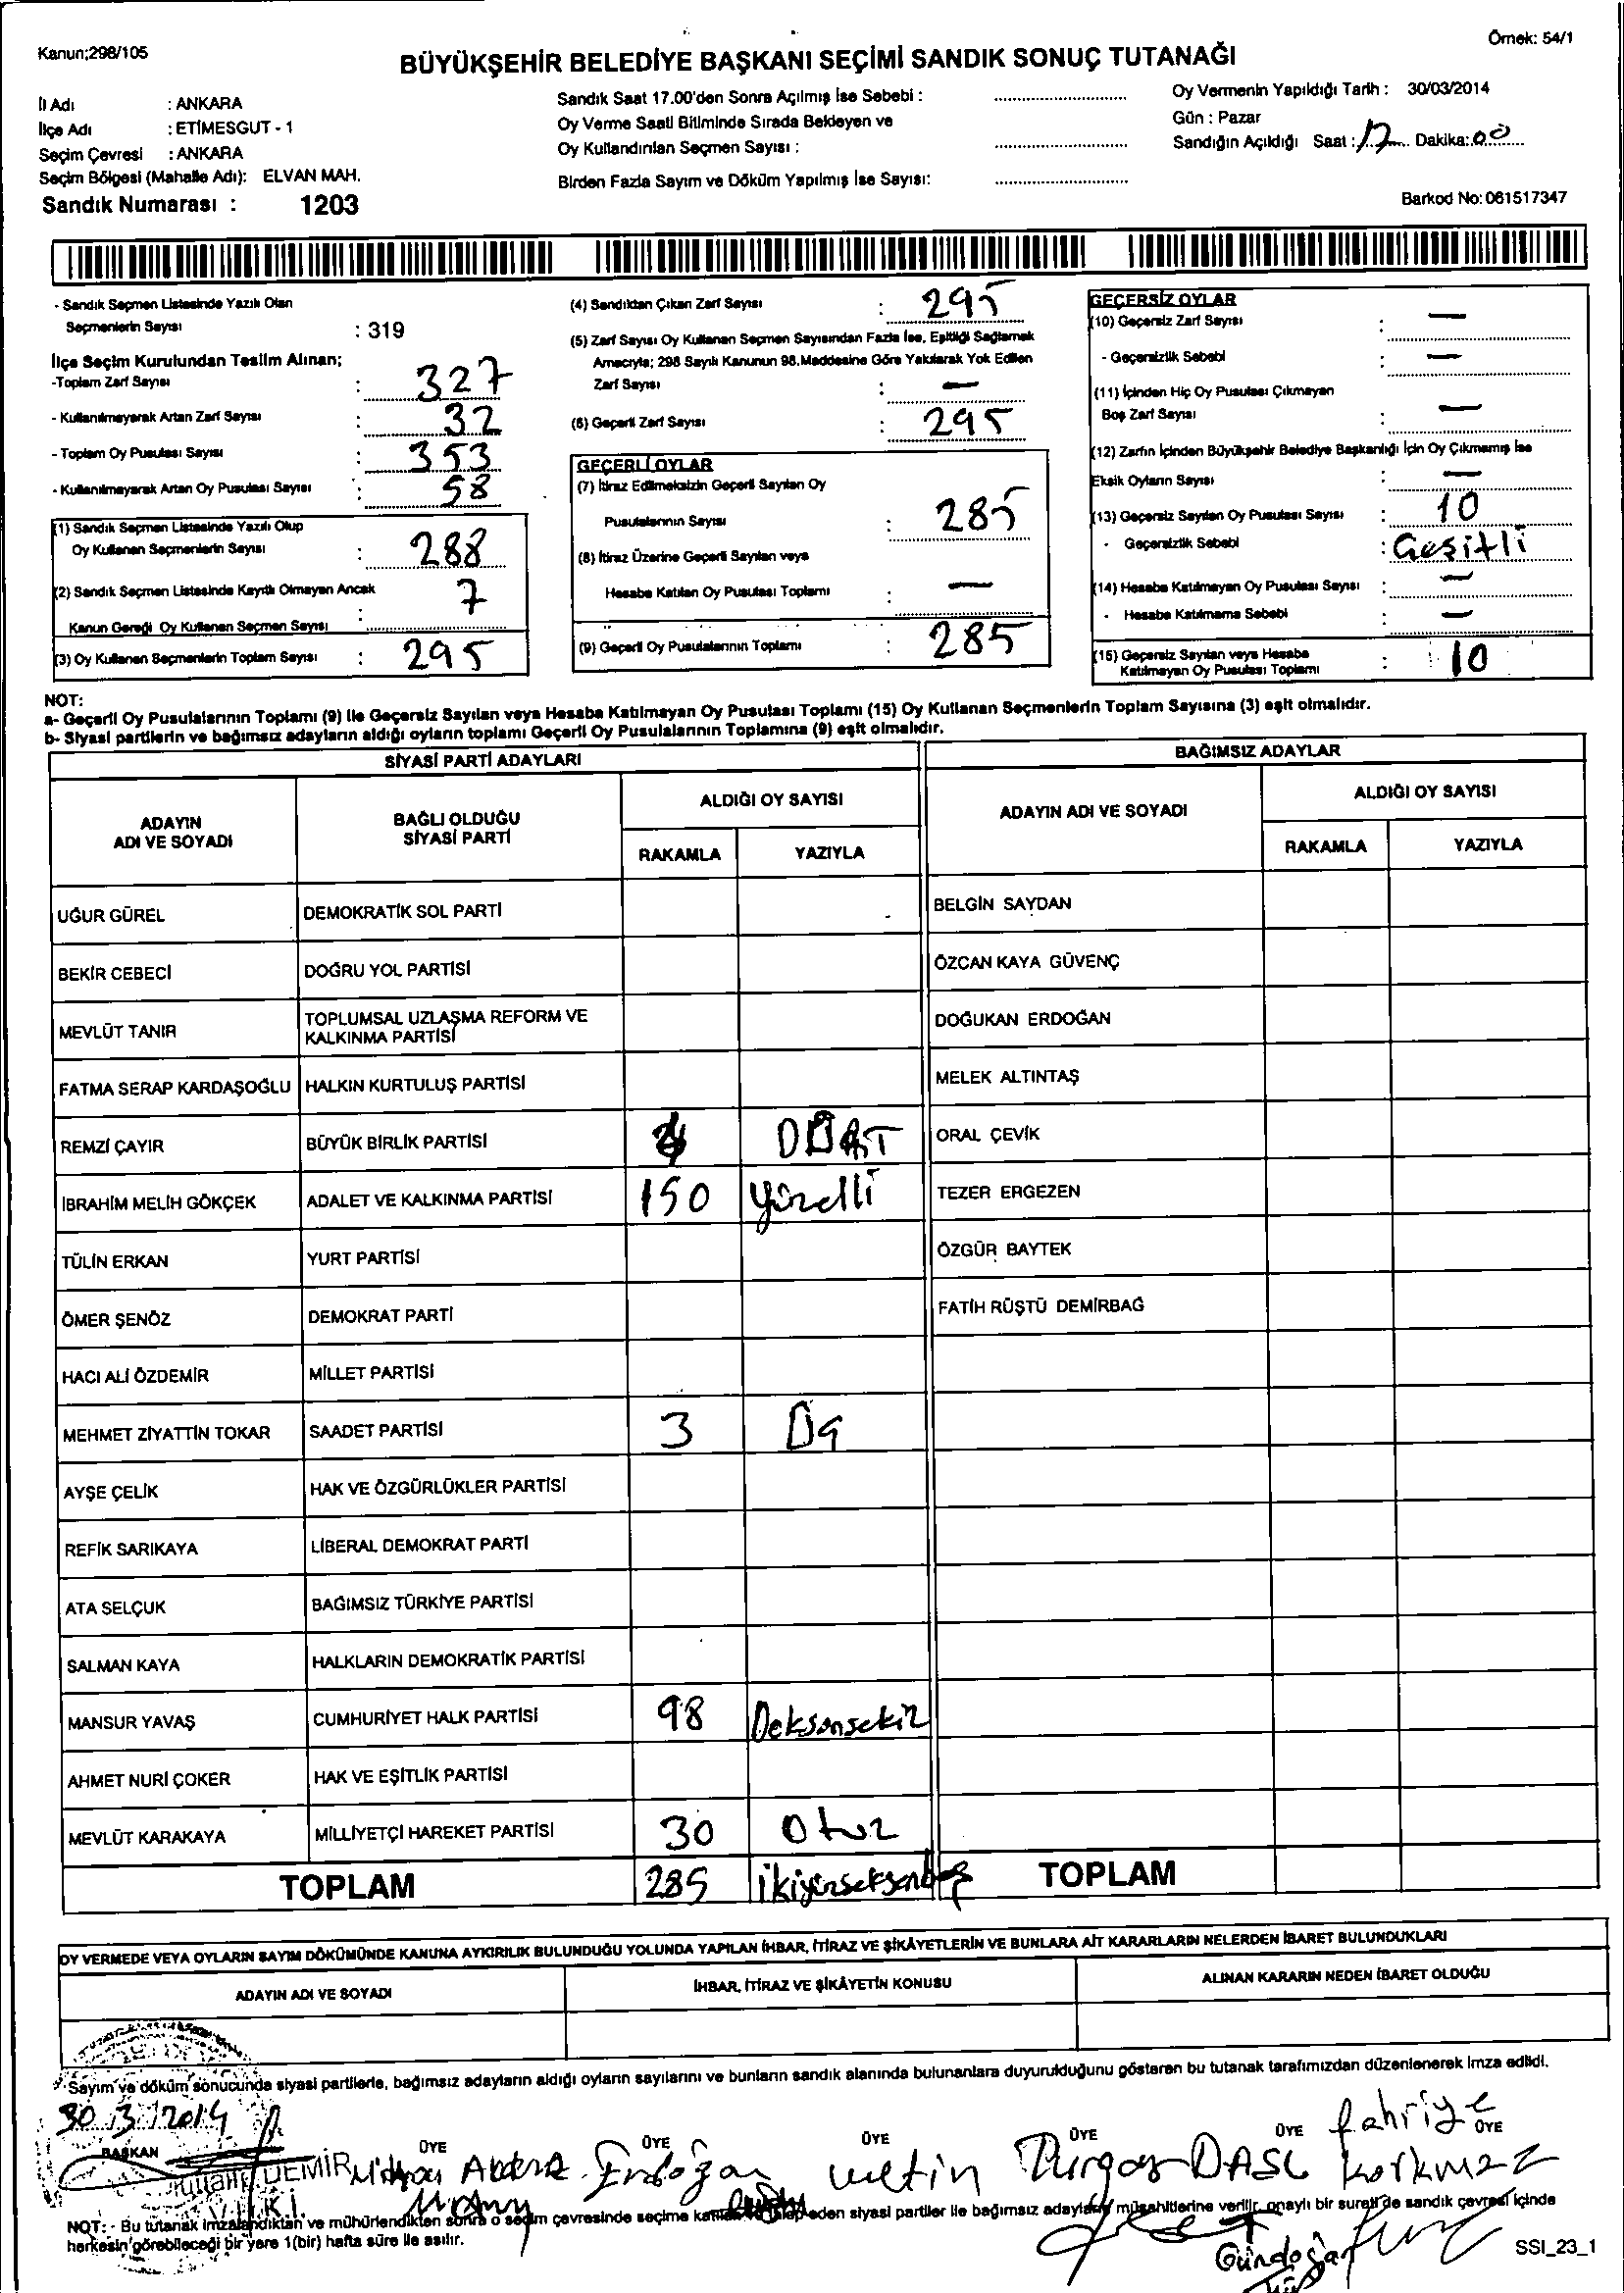 Kanun;298/105
Örnek: 54/1
BÜYÜKŞEHİR BELEDİYE BAŞKANI SEÇİMİ SANDIK SONUÇ TUTANAĞI
İl Adı : ANKARA
İlçe Adı : ETİMESGUT - 1
Seçim Çevresi : ANKARA
Seçim Bölgesi (Mahalle Adı): ELVAN MAH.
Sandık Numarası : 1203
Sandık Saat 17.00'den Sonra Açılmış İse Sebebi :
Oy Verme Saati Bitiminde Sırada Bekleyen ve
Oy Kullandırılan Seçmen Sayısı :
Birden Fazla Sayım ve Döküm Yapılmış İse Sayısı:
Oy Vermenin Yapıldığı Tarih : 30/03/2014
Gün : Pazar
Sandığın Açıldığı Saat : 17 Dakika: 00
Barkod No: 061517347
- Sandık Seçmen Listesinde Yazılı Olan
Seçmenlerin Sayısı : 319
İlçe Seçim Kurulundan Teslim Alınan;
-Toplam Zarf Sayısı : 327
- Kullanılmayarak Artan Zarf Sayısı : 32
- Toplam Oy Pusulası Sayısı : 353
- Kullanılmayarak Artan Oy Pusulası Sayısı : 58
(1) Sandık Seçmen Listesinde Yazılı Olup
Oy Kullanan Seçmenlerin Sayısı : 288
(2) Sandık Seçmen Listesinde Kayıtlı Olmayan Ancak
Kanun Gereği Oy Kullanan Seçmen Sayısı : 7
(3) Oy Kullanan Seçmenlerin Toplam Sayısı : 295
(4) Sandıktan Çıkan Zarf Sayısı : 295
(5) Zarf Sayısı Oy Kullanan Seçmen Sayısından Fazla İse, Eşitliği Sağlamak
Amacıyla; 298 Sayılı Kanunun 98.Maddesine Göre Yakılarak Yok Edilen
Zarf Sayısı : —
(6) Geçerli Zarf Sayısı : 295
GEÇERLİ OYLAR
(7) İtiraz Edilmeksizin Geçerli Sayılan Oy
Pusulalarının Sayısı : 285
(8) İtiraz Üzerine Geçerli Sayılan veya
Hesaba Katılan Oy Pusulası Toplamı : —
(9) Geçerli Oy Pusulalarının Toplamı : 285
GEÇERSİZ OYLAR
(10) Geçersiz Zarf Sayısı : —
- Geçersizlik Sebebi : —
(11) İçinden Hiç Oy Pusulası Çıkmayan
Boş Zarf Sayısı : —
(12) Zarfın İçinden Büyükşehir Belediye Başkanlığı İçin Oy Çıkmamış İse
Eksik Oyların Sayısı : —
(13) Geçersiz Sayılan Oy Pusulası Sayısı : 10
- Geçersizlik Sebebi : Geşitli
(14) Hesaba Katılmayan Oy Pusulası Sayısı : —
- Hesaba Katılmama Sebebi : —
(15) Geçersiz Sayılan veya Hesaba
Katılmayan Oy Pusulası Toplamı : 10
NOT:
a- Geçerli Oy Pusulalarının Toplamı (9) ile Geçersiz Sayılan veya Hesaba Katılmayan Oy Pusulası Toplamı (15) Oy Kullanan Seçmenlerin Toplam Sayısına (3) eşit olmalıdır.
b- Siyasi partilerin ve bağımsız adayların aldığı oyların toplamı Geçerli Oy Pusulalarının Toplamına (9) eşit olmalıdır.
SİYASİ PARTİ ADAYLARI
BAĞIMSIZ ADAYLAR
ADAYIN
ADI VE SOYADI
BAĞLI OLDUĞU
SİYASİ PARTİ
ALDIĞI OY SAYISI
RAKAMLA YAZIYLA
ADAYIN ADI VE SOYADI
ALDIĞI OY SAYISI
RAKAMLA YAZIYLA
UĞUR GÜREL DEMOKRATİK SOL PARTİ BELGİN SAYDAN
BEKİR CEBECİ DOĞRU YOL PARTİSİ ÖZCAN KAYA GÜVENÇ
MEVLÜT TANIR TOPLUMSAL UZLAŞMA REFORM VE
KALKINMA PARTİSİ DOĞUKAN ERDOĞAN
FATMA SERAP KARDAŞOĞLU HALKIN KURTULUŞ PARTİSİ MELEK ALTINTAŞ
REMZİ ÇAYIR BÜYÜK BİRLİK PARTİSİ 4 DÖRT ORAL ÇEVİK
İBRAHİM MELİH GÖKÇEK ADALET VE KALKINMA PARTİSİ 150 yüzelli TEZER ERGEZEN
TÜLİN ERKAN YURT PARTİSİ ÖZGÜR BAYTEK
ÖMER ŞENÖZ DEMOKRAT PARTİ FATİH RÜŞTÜ DEMİRBAĞ
HACI ALİ ÖZDEMİR MİLLET PARTİSİ
MEHMET ZİYATTİN TOKAR SAADET PARTİSİ 3 Üç
AYŞE ÇELİK HAK VE ÖZGÜRLÜKLER PARTİSİ
REFİK SARIKAYA LİBERAL DEMOKRAT PARTİ
ATA SELÇUK BAĞIMSIZ TÜRKİYE PARTİSİ
SALMAN KAYA HALKLARIN DEMOKRATİK PARTİSİ
MANSUR YAVAŞ CUMHURİYET HALK PARTİSİ 98 Doksansekiz
AHMET NURİ ÇOKER HAK VE EŞİTLİK PARTİSİ
MEVLÜT KARAKAYA MİLLİYETÇİ HAREKET PARTİSİ 30 Otuz
TOPLAM 285 ikiyüzseksenbeş TOPLAM
OY VERMEDE VEYA OYLARIN SAYIM DÖKÜMÜNDE KANUNA AYKIRILIK BULUNDUĞU YOLUNDA YAPILAN İHBAR, İTİRAZ VE ŞİKÂYETLERİN VE BUNLARA AİT KARARLARIN NELERDEN İBARET BULUNDUKLARI
ADAYIN ADI VE SOYADI İHBAR, İTİRAZ VE ŞİKÂYETİN KONUSU ALINAN KARARIN NEDEN İBARET OLDUĞU
Sayım ve döküm sonucunda siyasi partilerle, bağımsız adayların aldığı oyların sayılarını ve bunların sandık alanında bulunanlara duyurulduğunu gösteren bu tutanak tarafımızdan düzenlenerek imza edildi.
30.3.2014
BAŞKAN ÜYE ÜYE ÜYE ÜYE ÜYE ÜYE
DEMİR Erdoğan Metin Turgay DASL fahriye
korkmaz
NOT: - Bu tutanak imzalandıktan ve mühürlendikten sonra o seçim çevresinde seçime katılan ve talep eden siyasi partiler ile bağımsız adayların müşahitlerine verilir, onaylı bir sureti de sandık çevresi içinde
herkesin görebileceği bir yere 1(bir) hafta süre ile asılır.
Gündoğan
SSI_23_1